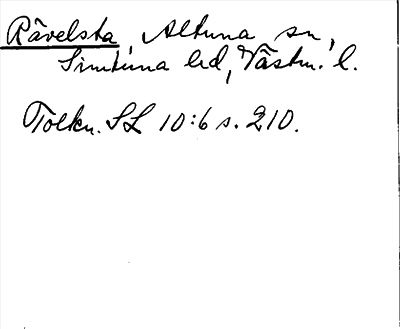 Råvelsta, Altuna sn,
Simtuna hd, Västm. l.
Tolkn. SL 10:6 s. 210.